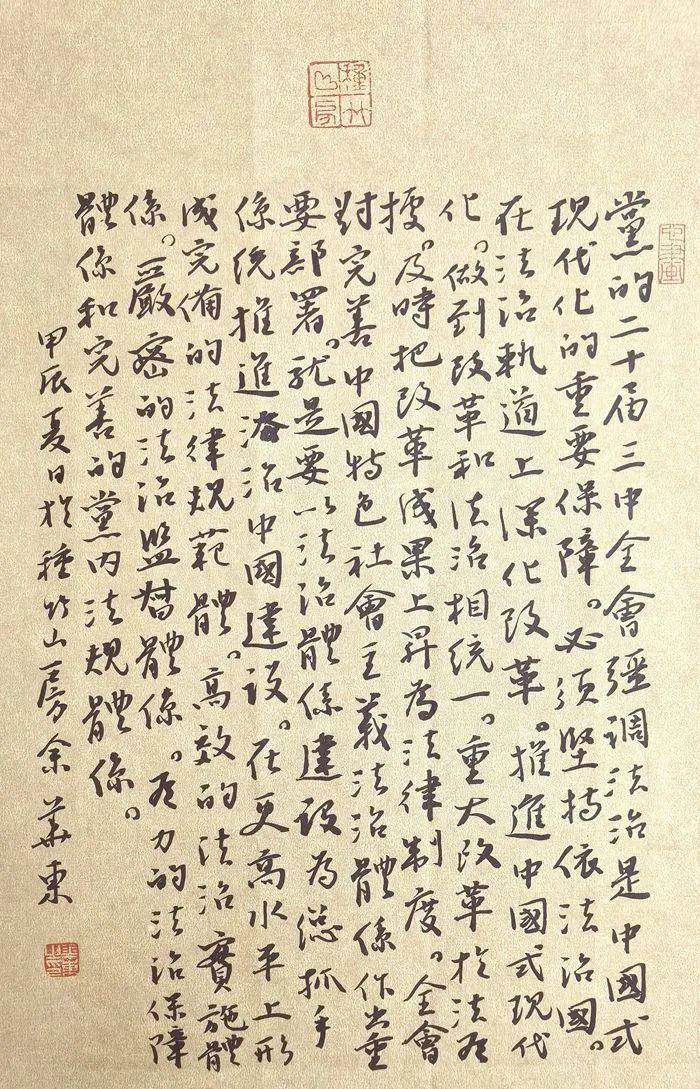 種竹山房
黨的二十届三中全會彊調法治是中國式
现代化的重要保障。必须堅持依法治國。
在法治軌道上深化改革。推進中國式現代
化。做到改革和法治相統一。重大改革於法有
據。及時把改革成果上昇為法律制度。全會
對完善中國特色社會主義法治體係作出重
要部署。就是要以法治體係建設為總抓手
係统推進治中國建设。在更高水平上形
成完備的法律规範體。高效的法治實施體
係。嚴密的法治監督體係。有力的法治保障
體係和完善的黨内法规體係。
甲辰夏日於種竹山房余華東